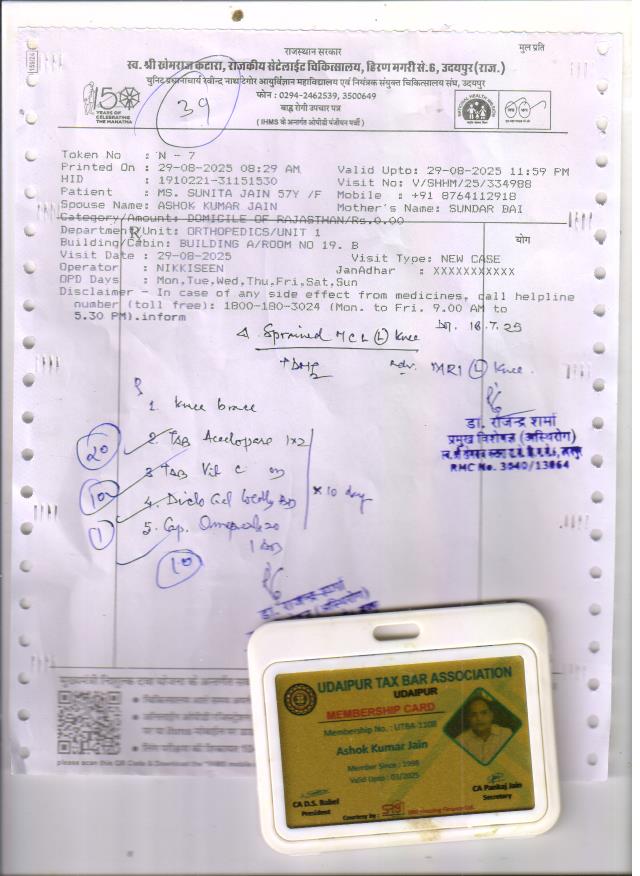 राजस्थान सरकार
मूल प्रति
स्व. श्री खेमराज कटारा, राजकीय सेटेलाईट चिकित्सालय, हिरण मगरी सं.6, उदयपुर (राज.)
चुनिट प्रधानाचार्य रवीन्द्र नाथ टैगोर आयुर्विज्ञान महाविद्यालय एवं नियंत्रक संयुक्त चिकित्सालय संघ, उदयपुर
फोन : 0294-2462539, 3500649
बाह्य रोगी उपचार पत्र
( IHMS के अन्तर्गत ओपीडी पंजीयन पर्ची )
150
YEARS OF
CELEBRATING
THE MAHATMA
39
Token No : N - 7
Printed On : 29-08-2025 08:29 AM Valid Upto: 29-08-2025 11:59 PM
HID : 1910221-31151530 Visit No: V/SHHM/25/334988
Patient : MS. SUNITA JAIN 57Y /F Mobile : +91 8764112918
Spouse Name: ASHOK KUMAR JAIN Mother's Name: SUNDAR BAI
Category/Amount: DOMICILE OF RAJASTHAN/Rs.0.00
Department/Unit: ORTHOPEDICS/UNIT 1
योग
Building/Cabin: BUILDING A/ROOM NO 19. B
Visit Date : 29-08-2025 Visit Type: NEW CASE
Operator : NIKKISEEN JanAdhar : XXXXXXXXXXX
OPD Days : Mon,Tue,Wed,Thu,Fri,Sat,Sun
Disclaimer - In case of any side effect from medicines, call helpline
number (toll free): 1800-180-3024 (Mon. to Fri. 9.00 AM to
5.30 PM).inform
Sprained MCL (L) Knee
Adv. MRI (L) Knee.
1. Knee brace
20
2. Tab Aceclopara 1x2
3 Tab Vit C
10
4. Diclo Gel locally BD
x 10 day
1
5. Cap. Omeprazole 20
1 BD
10
डा. राजेन्द्र शर्मा
प्रमुख विशेषज्ञ (अस्थिरोग)
RMC No. 3040/13864
डा. राजेन्द्र शर्मा
please scan this QR Code & Download the
UDAIPUR TAX BAR ASSOCIATION
UDAIPUR
MEMBERSHIP CARD
Membership No. : UTBA-1108
Ashok Kumar Jain
Member Since : 1998
Valid Upto : 03/2025
CA D.S. Babel
President
CA Pankaj Jain
Secretary
Courtesy by :